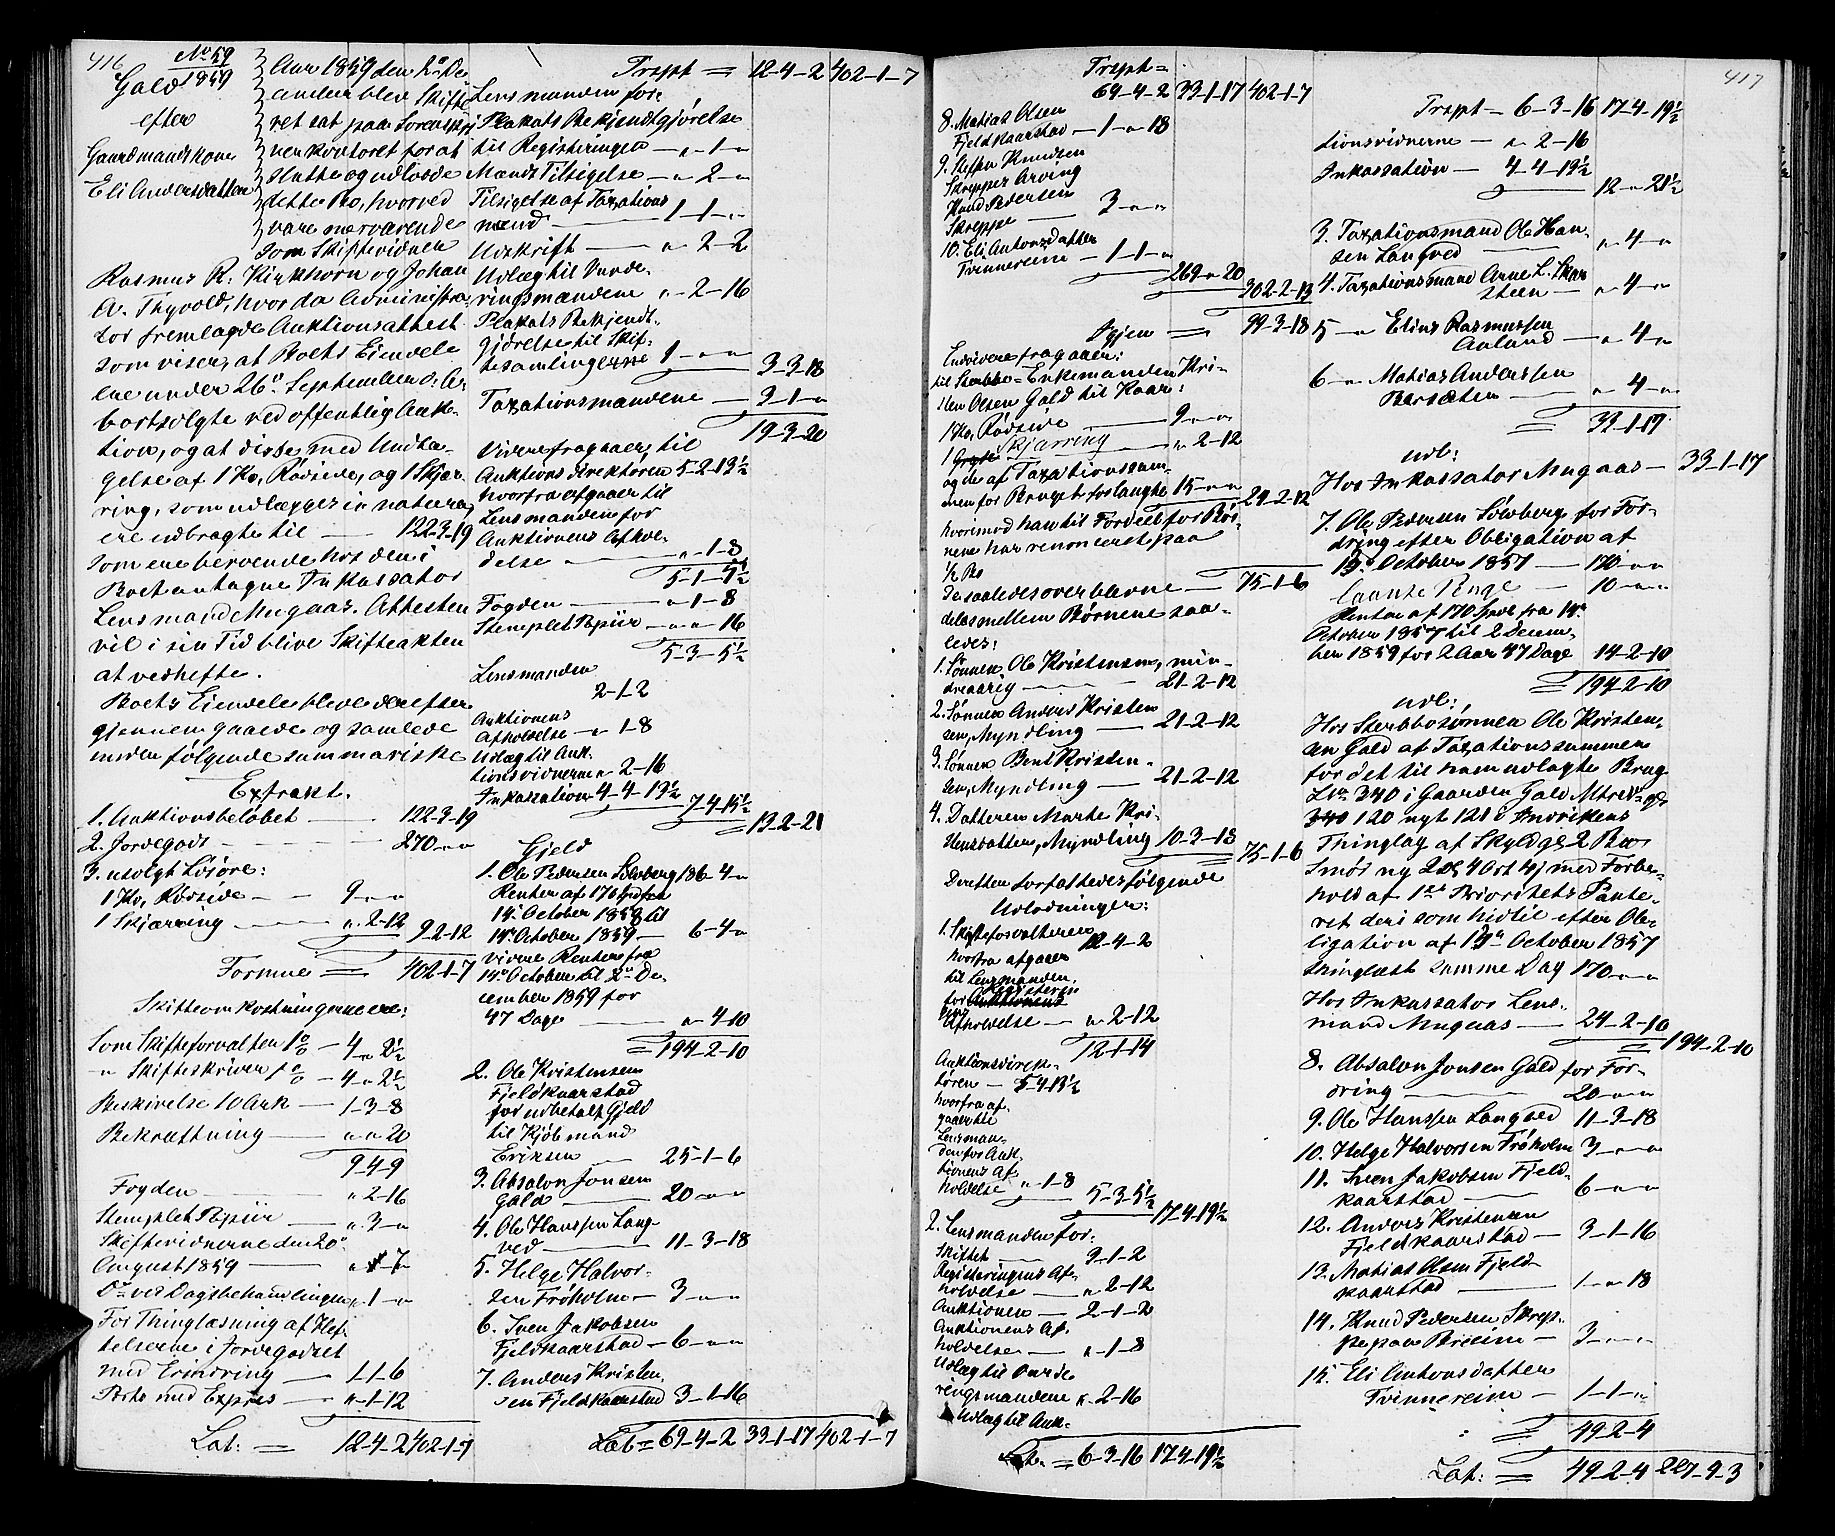 416
No 59
1859
Gald
efter
Gaardmandskone
Eli Andersdatter
Aar 1859 den 2de De
cember blev Skifte
ret sat paa Sorenskri
verkontoret for at
slutte og udlodde
dette Bo, hvorved
vare nærværende
som Skiftevidner
Rasmus R. Kirkhorn og Johan
A. Thyvold, hvor da Administra-
tor fremlagde Auktionsattest
som viser, at Boets Eiendele
ere under 26de September d. A.
bortsolgte ved offentlig Auk-
tion, og at disse med Undta-
gelse af 1 Ko, Rødside, og 1 Skjær-
ring, som udlægges in natura,
ere udbragte til — 122-3-19
som ere beroende hos den i
Boet antagne Inkassator
Lensmand Mugaas. Attesten
vil i sin Tid blive Skifteakten
at vedhefte.
Boets Eiendele bleve derefter
gjennemgaaede og samlede
under følgende summariske
Extrakt.
1. Auktionsbeløbet — 122-3-19
2. Jordegods — 270-"-"
3. usolgt Løsøre:
1 Ko, Rødside — 9-"-"
1 Skjærring — "-2-12 9-2-12
Formue = 402-1-7
Skifteomkostningerne ere:
Som Skifteforvalter 1 % — 4-"-2½
" Skifteskriver 1 % — 4-"-2½
Beskrivelse 10 Ark — 1-3-8
Bekræftning — "-"-20
9-4-9
Fogden — "-2-16
Stemplet Papir — "-3-"
Skiftevidnerne den 20de
August 1859 —
Do ved Dagsbehandlingen "-1-"
For Thinglæsning af Hef-
telserne i Jordegodset
med Erindring — 1-1-6
Porto med Expres — "-1-12
Lat: = 12-4-2 402-1-7
Trspt = 12-4-2 402-1-7
Lensmanden for:
Plakats Bekjendtgjørelse
til Registeringen — "-1-"
Mænds Tilsigelse — "-2-"
Tilsigelse af Taxations
mænd — 1-1-"
Udskrift — "-2-2
Udlæg til Vurde-
ringsmændene "-2-16
Plakats Bekjendt-
gjørelse til Skif-
tesamlingerne 1-"-" 3-3-18
Taxationsmændene — 3-1-"
19-3-20
Videre fragaaer, til
Auktionsdirektøren 5-2-13½
hvorfra afgaaer til
Lensmanden for
Auktionens Afhol-
delse — "-1-8
5-1-5½
Fogden — "-1-8
Stemplet Papiir — "-"-16
5-3-5½
Lensmanden
2-1-2
Auktionens
Afholdelse — "-1-8
Udlæg til Auk-
tionsvidnerne "-2-16
Inkassation 4-4-13½
7-4-15½
= 13-2-21
Gjeld
1. Ole Pedersen Solvberg 186-4-"
Renter af 170 Spd fra
14de October 1858 til
14de October 1859 — 6-4-"
videre Renter fra
14de October til 2den De-
cember 1859 for
47 Dage — "-4-10
= 194-2-10
2. Ole Kristensen
Fjeldkaarstad
for udbetalt Gjeld
til Kjøbmand
Eriksen — 25-1-6
3. Absalon Jonsen
Gald — 20-"-"
4. Ole Hanssen Lang-
ved — 11-3-18
5. Helge Halvor-
sen Frøholm — 3-"-"
6. Sven Jakobsen
Fjeldkaarstad — 6-"-"
7. Anders Kristen-
sen Fjeldkaarstad 3-1-16
Lat = 69-4-2 33-1-17 402-1-7
417
Trspt =
69-4-2 33-1-17 402-1-7
8. Matias Olsen
Fjeldkaarstad — 1-"-18
9. Knudsen
Skreppes Arving
Knud Pedersen
Skreppe — 3-"-"
10. Eli Antonsdatter
Tvinnereim — 1-1-"
269-"-20
302-2-13
Igjen = 99-3-18
Endvidere fragaaer:
til Sterbbo-Enkemanden Kri-
sten Olsen Gald til Kaar:
1 Ko, Rødside — 9-"-"
1 Skjærring — "-2-12
og de af Taxationssum-
men for Bruget forlangte 15-"-"
24-2-12
hvorimod han til Fordeel for Bør-
nene har renonceret paa
½ Bo
Det saaledes overblevne — 75-1-6
deles mellem Børnene saa-
ledes:
1. Sønnen Ole Kristensen, min-
dreaarig — 21-2-12
2. Sønnen Anders Kristen
sen, Myndling — 21-2-12
3. Sønnen Bent Kristen-
sen, Myndling — 21-2-12
4. Datteren Marte Kri-
stensdatter, Myndling 10-3-18
75-1-6
Derefter forfattedes følgende
Udlodninger:
1. Skifteforvalteren
12-4-2
hvorfra afgaaer
til Lensmanden
for Registerin
gens
Afholdelse — "-2-12
12-1-14
Auktionsdirek-
tøren — 5-4-13½
hvorfra af-
gaaer til
Lensman-
den for Auk-
tionens Af-
holdelse "-1-8
5-3-5½
17-4-19½
2. Lensmanden for:
Skiftet — 3-1-2
Registeringens Af-
holdelse — "-2-12
Auktionen — 2-1-2
Auktionens Af-
holdelse — "-1-8
Udlæg til Vurde
ringsmændene "-2-16
Udlæg til Auk-
Lat. = 6-3-16 17-4-19½
Trspt — 6-3-16 17-4-19½
tionsvidnerne — "-2-16
Inkassation — 4-4-13½
12-"-21½
3. Taxationsmand Ole Han-
sen Langved — "-4-"
4. Taxationsmand Arne L. Skar
steen — "-4-"
5 — " Elias Rasmussen
Aaland — "-4-"
6 — " Matias Anderssen
Barsæten — "-4-"
= 33-1-17
udl:
Hos Inkassator Mugaas — 33-1-17
7. Ole Pedersen Solvberg for For-
dring efter Obligation af
13de October 1857 — 170-"-"
laante Penge — 10-"-"
Renter af 170 Spd fra 14de
October 1857 til 2 Decem-
ber 1859 for 2 Aar 47 Dage 14-2-10
= 194-2-10
udl:
Hos Sterbbosønnen Ole Kristen-
sen Gald af Taxationssummen
for det til ham udlagte Brug
Lno 340 i Gaarden Gald Mtrd No gl.
120 nyt 121 i Indvikens
Thinglag af Skyld gl. 2 Pd
Smør ny 2 Dl 4 Ort 4 s med Forbe-
hold af 1ste Prioritets Pante-
ret deri som hidtil efter Obli-
gation af 13de October 1857
thinglæst samme Dag 170-"-"
Hos Inkassator Lens-
mand Mugaas — 24-2-10
= 194-2-10
8. Absalon Jonsen Gald for For-
dring — 20-"-"
9. Ole Hanssen Langved 11-3-18
10. Helge Halvorsen Frøholm 3-"-"
11. Sven Jakobsen Fjeld-
kaarstad — 6-"-"
12. Anders Kristensen
Fjeldkaarstad — 3-1-16
13. Matias Olsen Fjeld-
kaarstad — 1-"-18
14. Knud Pedersen Skrep-
pe paa Breeim — 3-"-"
15. Eli Antonsdatter
Tvinnereim — 1-1-"
= 49-2-4
Lat: = 49-2-4 227-3-3